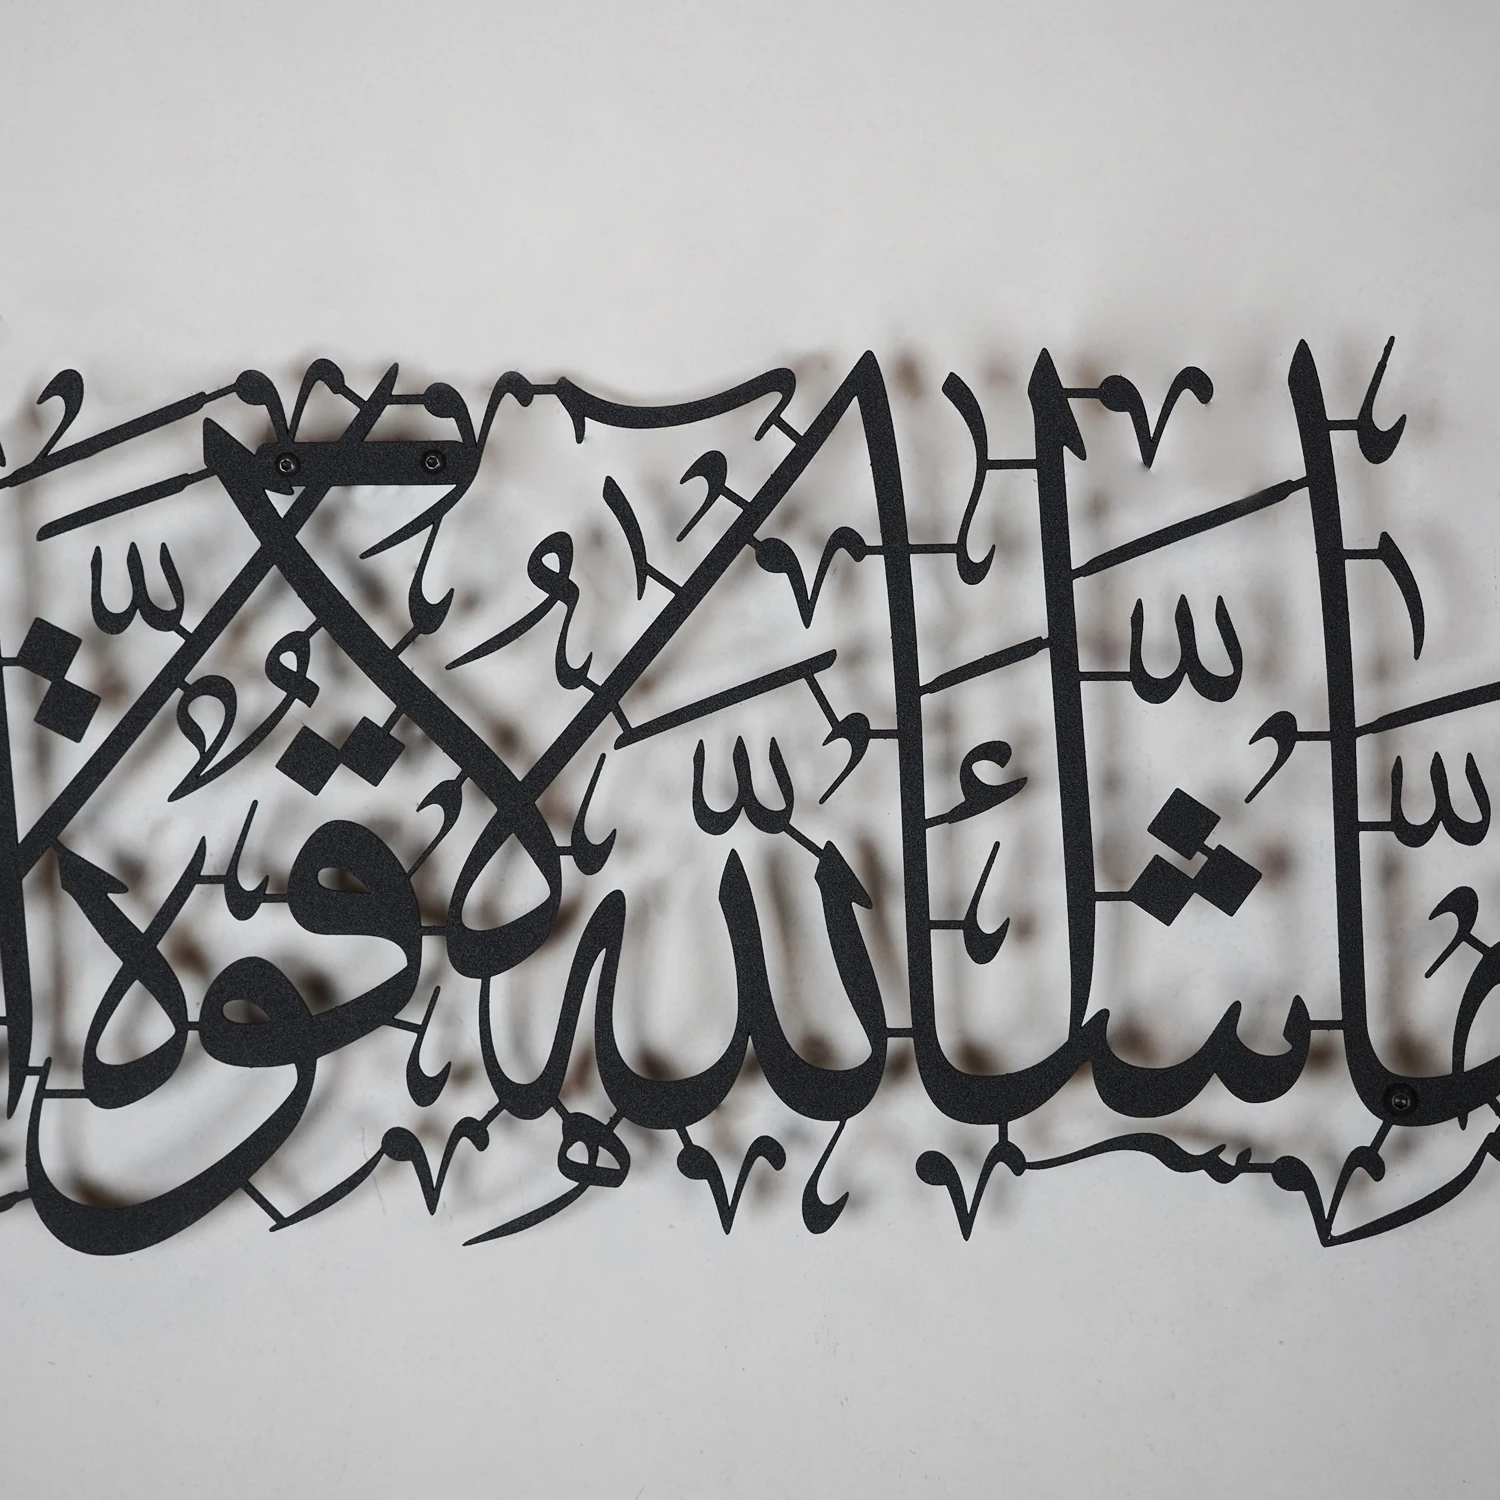 مَا شَاءَ اللّٰهُ لَا قُوَّةَ إِلَّا